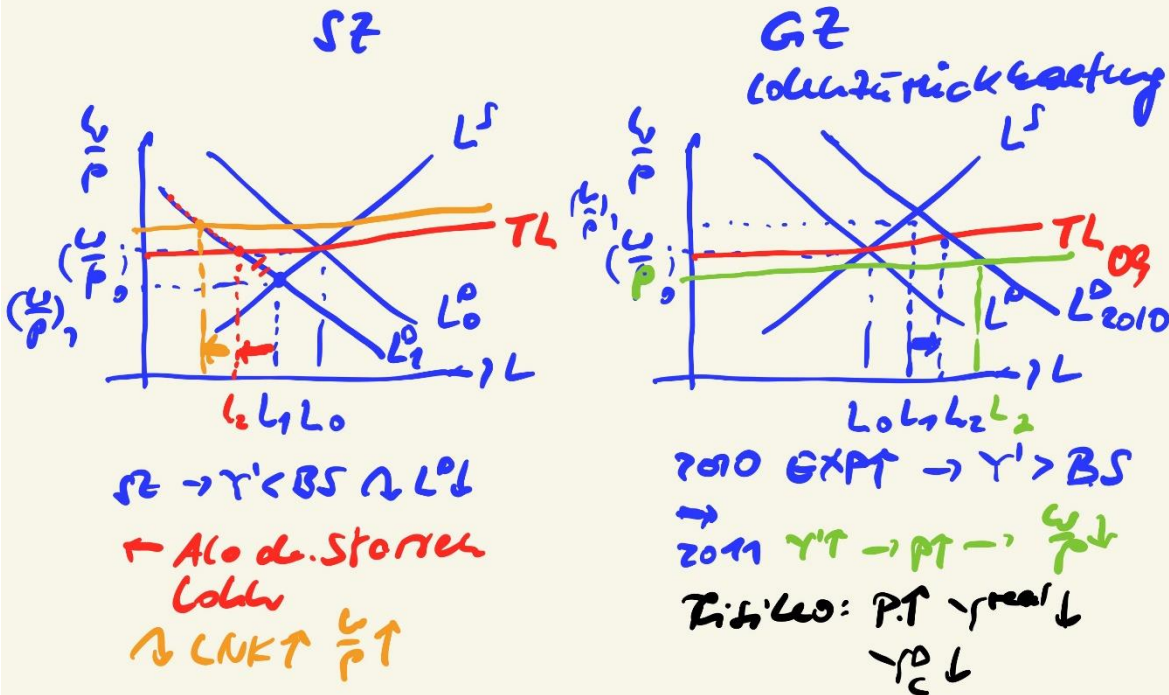 SZ
w/p
L^S
TL
(w/p)_0
(w/p)_1
L^D_0
L^D_1
L
L_2 L_1 L_0
SZ → Y' < BS ↷ L^D ↓
← Alo d. starren
Löhne
↷ LNK ↑ w/p ↑
GZ
Lohnzurückhaltung
w/p
L^S
(w/p)_1
(w/p)_0
TL 09
L^D
L^D 2010
L
L_0 L_1 L_2 L_2
2010 EXP ↑ → Y' > BS
→
2011 Y' ↑ → P ↑ → w/p ↓
Risiko: P ↑ Y^real ↓
Y^D_C ↓